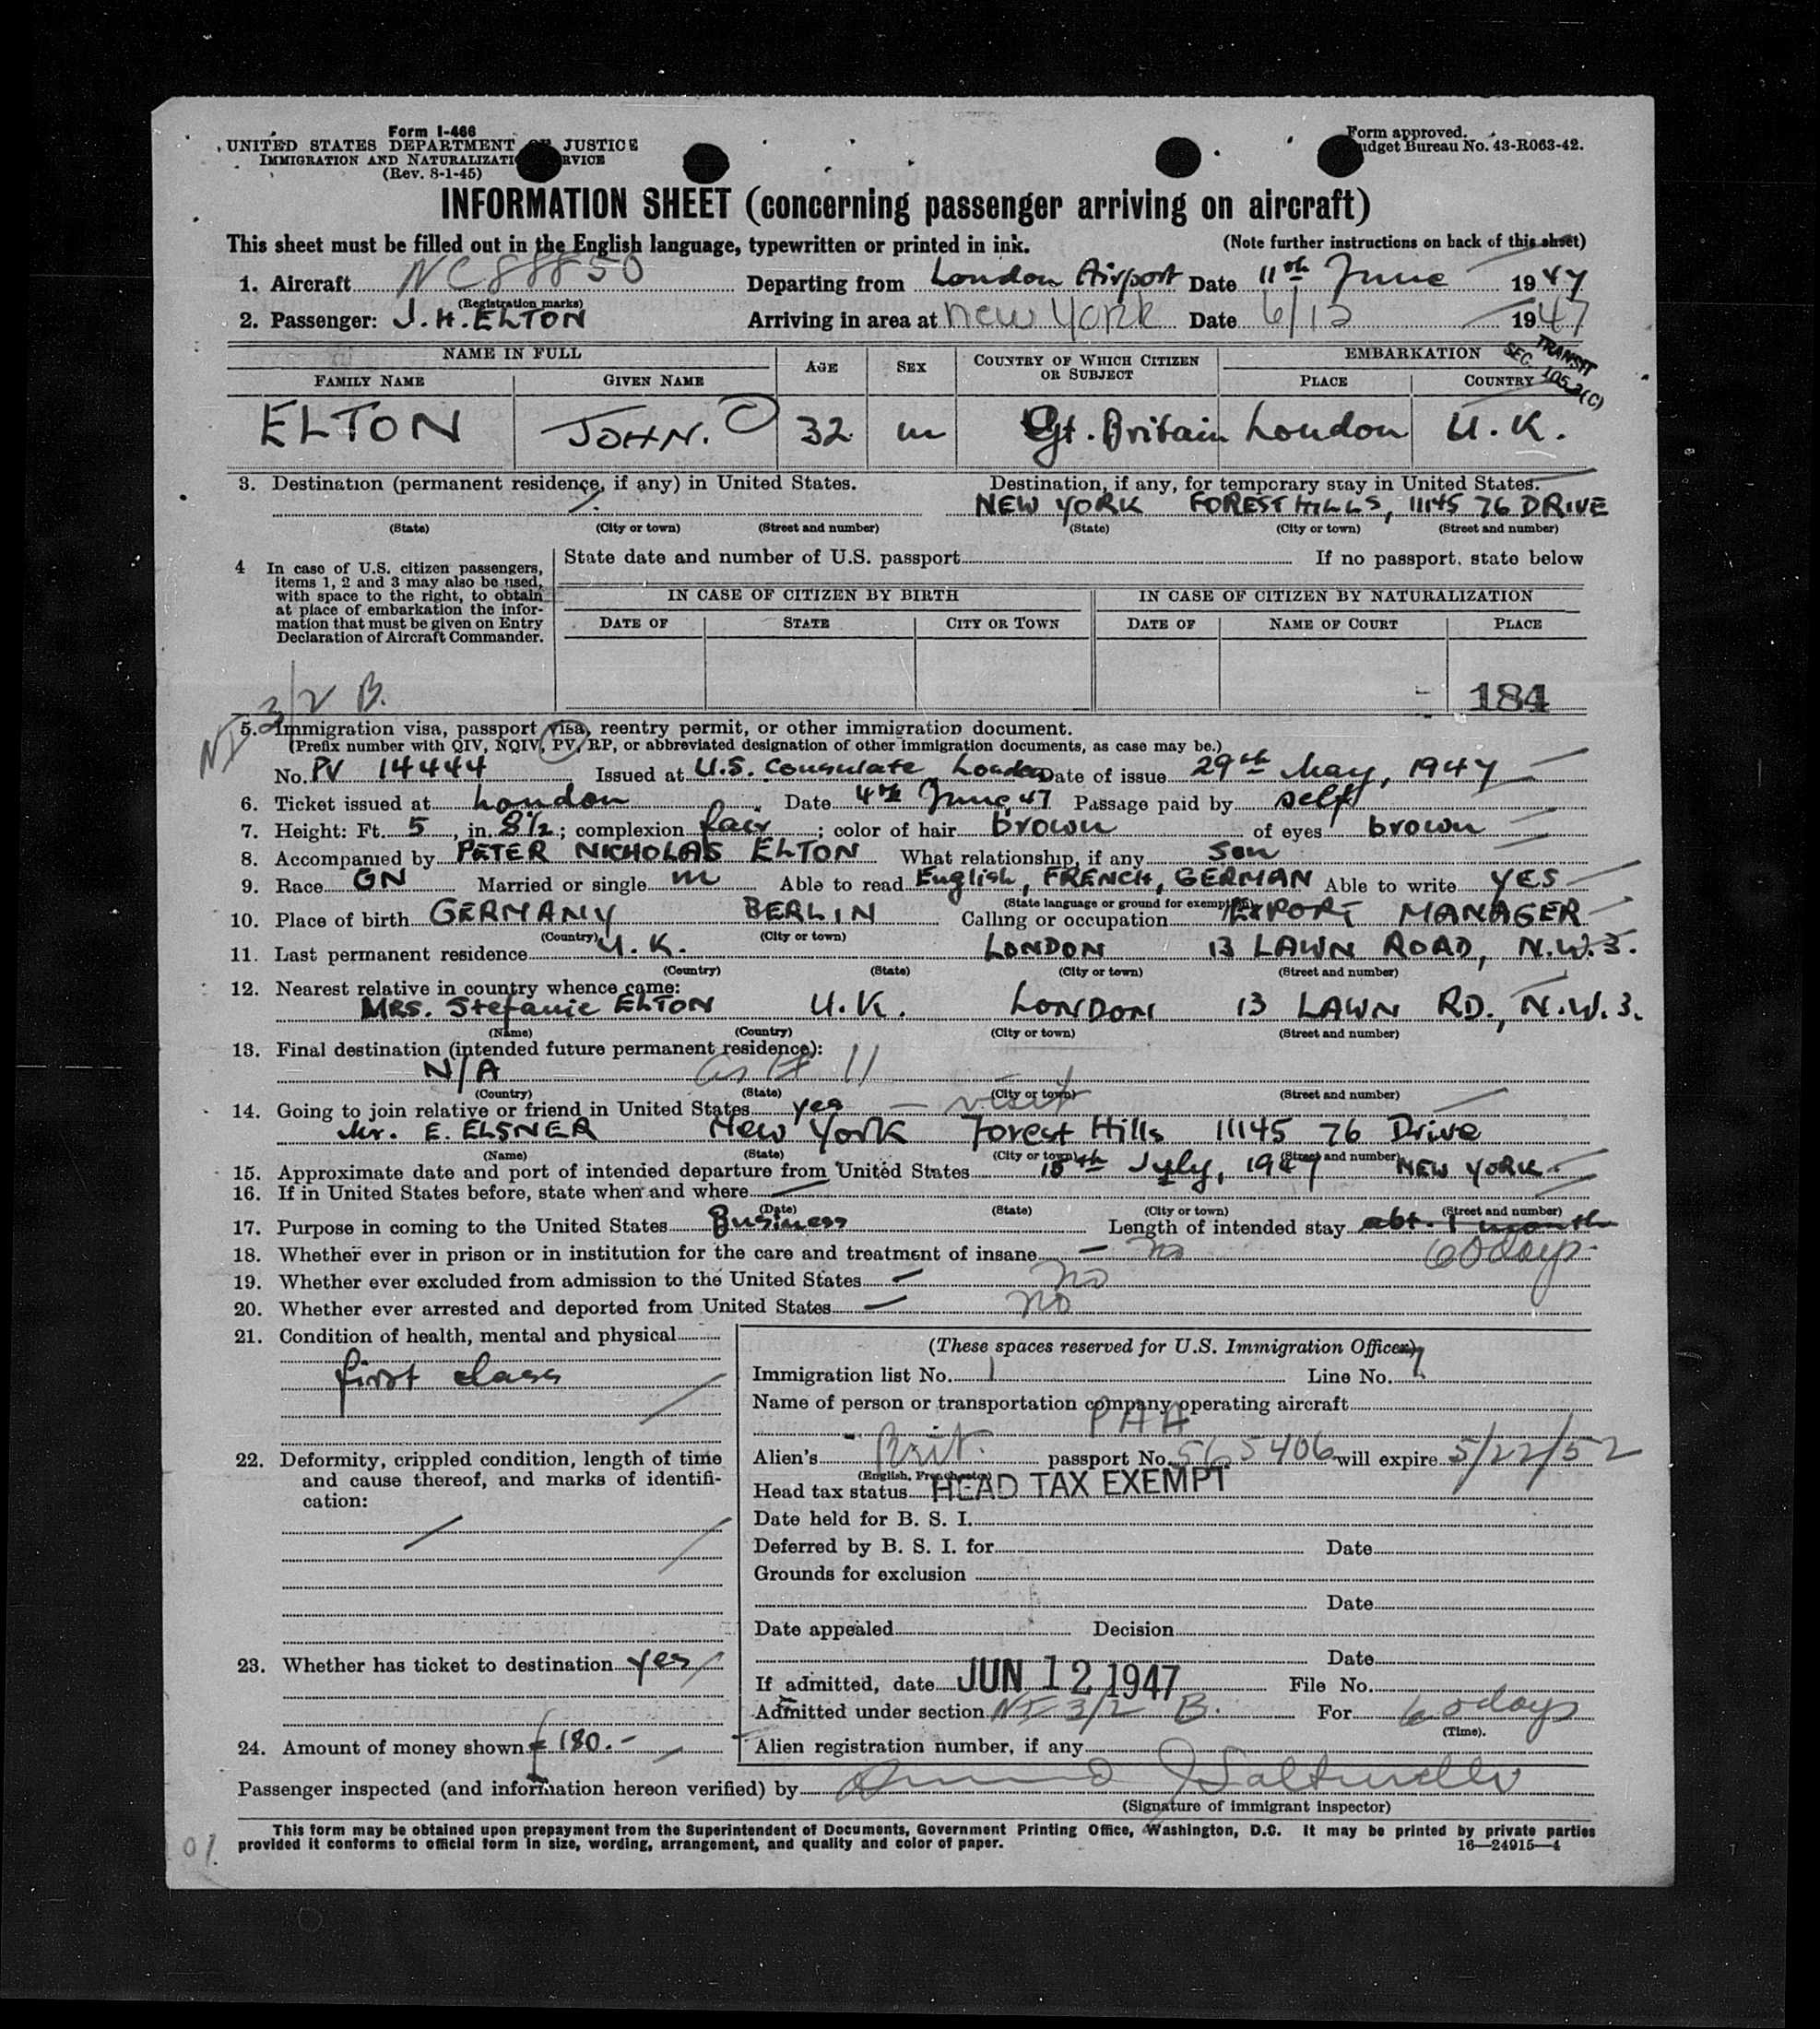 Form I-466
UNITED STATES DEPARTMENT OF JUSTICE
IMMIGRATION AND NATURALIZATION SERVICE
(Rev. 8-1-45)
Form approved.
Budget Bureau No. 43-R063-42.
INFORMATION SHEET (concerning passenger arriving on aircraft)
This sheet must be filled out in the English language, typewritten or printed in ink. (Note further instructions on back of this sheet)
1. Aircraft NC88850 Departing from London Airport Date 11th June 1947
(Registration marks)
2. Passenger: J. H. ELTON Arriving in area at New York Date 6/12 1947
TRANSIT
SEC. 105.3(C)
NAME IN FULL AGE SEX COUNTRY OF WHICH CITIZEN OR SUBJECT EMBARKATION
FAMILY NAME GIVEN NAME PLACE COUNTRY
ELTON JOHN. 32 m Gt. Britain London U.K.
3. Destination (permanent residence, if any) in United States. Destination, if any, for temporary stay in United States.
NEW YORK FOREST HILLS, 11145 76 DRIVE
(State) (City or town) (Street and number) (State) (City or town) (Street and number)
4 In case of U.S. citizen passengers, items 1, 2 and 3 may also be used, with space to the right, to obtain at place of embarkation the information that must be given on Entry Declaration of Aircraft Commander.
State date and number of U.S. passport If no passport, state below
IN CASE OF CITIZEN BY BIRTH IN CASE OF CITIZEN BY NATURALIZATION
DATE OF STATE CITY OR TOWN DATE OF NAME OF COURT PLACE
184
NI 3/2 B.
5. Immigration visa, passport visa, reentry permit, or other immigration document.
(Prefix number with QIV, NQIV, PV, RP, or abbreviated designation of other immigration documents, as case may be.)
No. PV 14444 Issued at U.S. Consulate London Date of issue 29th May, 1947
6. Ticket issued at London Date 4th June 47 Passage paid by self
7. Height: Ft. 5, in. 8½; complexion fair; color of hair brown of eyes brown
8. Accompanied by PETER NICHOLAS ELTON What relationship, if any son
9. Race GN Married or single m Able to read English, FRENCH, GERMAN Able to write YES
(State language or ground for exemption)
10. Place of birth GERMANY BERLIN Calling or occupation EXPORT MANAGER
(Country) (City or town)
11. Last permanent residence U.K. LONDON 13 LAWN ROAD, N.W.3.
(Country) (State) (City or town) (Street and number)
12. Nearest relative in country whence came:
MRS. Stefanie ELTON U.K. LONDON 13 LAWN RD., N.W.3.
(Name) (Country) (City or town) (Street and number)
13. Final destination (intended future permanent residence):
N/A as # 11
(Country) (State) (City or town) (Street and number)
14. Going to join relative or friend in United States yes - visit
Mr. E. ELSNER New York Forest Hills 11145 76 Drive
(Name) (State) (City or town) (Street and number)
15. Approximate date and port of intended departure from United States July, 1947 NEW YORK.
16. If in United States before, state when and where
(Date) (State) (City or town) (Street and number)
17. Purpose in coming to the United States Business Length of intended stay abt. 1 month
18. Whether ever in prison or in institution for the care and treatment of insane - no 60 days.
19. Whether ever excluded from admission to the United States - no
20. Whether ever arrested and deported from United States - no
21. Condition of health, mental and physical
first class
22. Deformity, crippled condition, length of time and cause thereof, and marks of identification:
23. Whether has ticket to destination yes
24. Amount of money shown £180.-
(These spaces reserved for U.S. Immigration Officer)
Immigration list No. 1 Line No. 7
Name of person or transportation company operating aircraft
PAA
Alien's Brit. passport No. 565406 will expire 5/22/52
(English, French, etc.)
Head tax status HEAD TAX EXEMPT
Date held for B. S. I.
Deferred by B. S. I. for Date
Grounds for exclusion
Date
Date appealed Decision
Date
If admitted, date JUN 12 1947 File No.
Admitted under section NI 3/2 B. For 60 days
(Time).
Alien registration number, if any
Passenger inspected (and information hereon verified) by
(Signature of immigrant inspector)
This form may be obtained upon prepayment from the Superintendent of Documents, Government Printing Office, Washington, D.C. It may be printed by private parties
provided it conforms to official form in size, wording, arrangement, and quality and color of paper. 16—24915—4